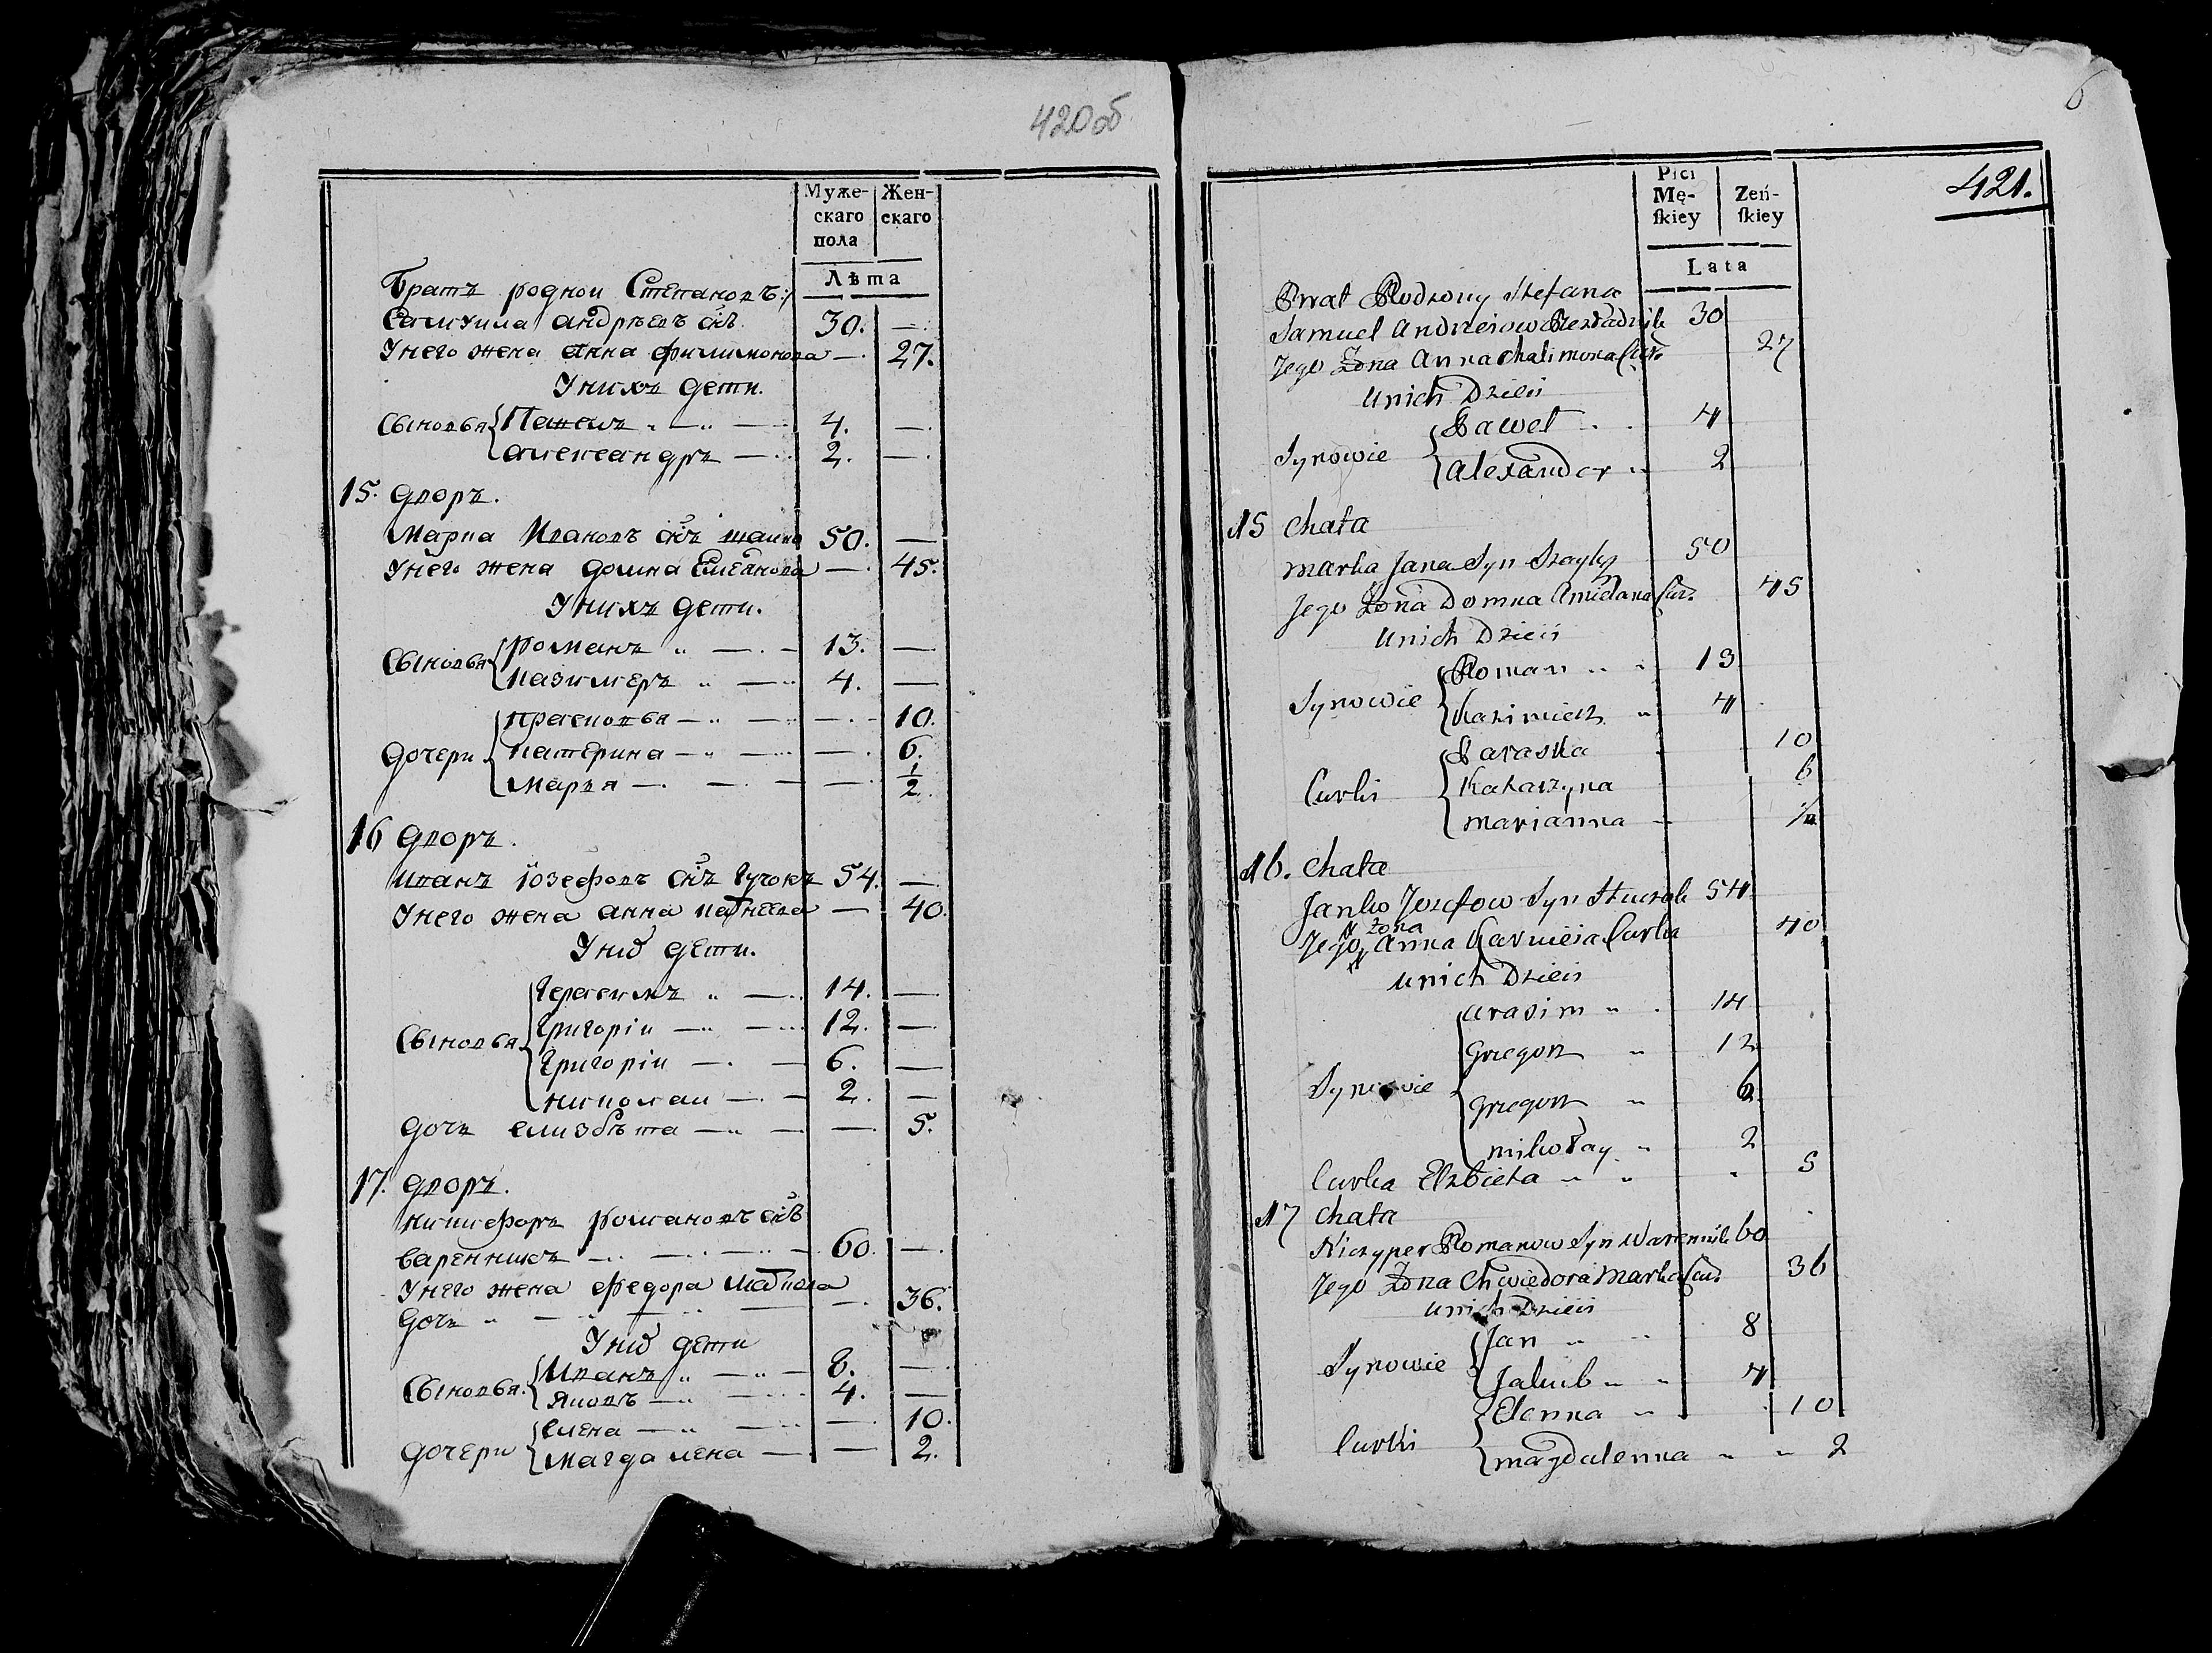 420об
Муже- Жен-
скаго скаго
пола
Лѣта
Братъ роднои Степановъ
Самуила Андрѣевъ снъ 30. —
У него жена Анна Филимонова — 27.
У нихъ дети.
Сыновья Павелъ 4. —
Александръ 2. —
15. Дворъ.
Марка Ивановъ снъ Шаика 50. —
У него жена Домна Емеанова — 45.
У нихъ дети.
Сыновья Романъ 13. —
Казимеръ 4. —
Прасковья — 10.
Дочери Катерина — 6.
Марья — 1/2
16 Дворъ.
Иванъ Юзефовъ снъ 54. —
У него жена Анна — 40.
У них дети.
Герасимъ 14. —
Сыновья Григоріи 12. —
Григоріи 6. —
Николаи 2. —
Дочь Елизбѣта — 5.
17. Дворъ.
Никифоръ Романовъ снъ
Варенникъ 60. —
У него жена Федора Маркова
Дочь — 36.
У них дети
Сыновья Иванъ 8. —
Яковъ 4. —
Елена — 10.
Дочери Магдалена — 2.
6
421.
Płci
Mę- Żeń-
ſkiey ſkiey
Lata
Brat Rodzony Stefana
Samuel Andrzeiow 30
Jego Żona Anna Chalimona Cur. 27
U nich Dzieci
Paweł 4
Synowie Alexander 2
15 Chata
Marko Jana Syn Szayky 50
Jego Żona Domna Amielana Cur. 45
U nich Dzieci
Roman 13
Synowie Kazimierz 4
Paraska 10
Curki Katarzyna 6
Marianna 1/2
16. Chata
Janko Jozefow Syn 54
Żona
Jego Anna Karnieia Curka 40
U nich Dzieci
Arasim 14
Grzegorz 12
Synowie Grzegorz 6
Mikołay 2
Curka Elzbieta 5
17 Chata
Niczyper Romanow Syn Warennik 60
Jego Żona Chwiedora Marka Cur. 36
U nich Dzieci
Jan 8
Synowie Jakub 4
Elenna 10
Curki Magdalenna 2